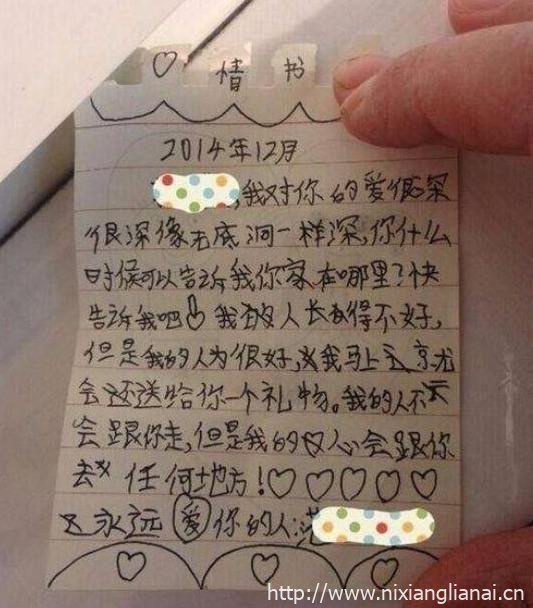 ♡ 情书
2014年12月
,我对你的爱很深
很深像无底洞一样深,你什么
时候可以告诉我你家在哪里?快
告诉我吧 我的人长得不好,
但是我的人为很好,我马上
会还送给你一个礼物。我的人不
会跟你走,但是我的心会跟你
去任何地方!♡♡♡♡♡
永远爱你的人:范
♡ ♡ ♡
http://www.nixianglianai.cn